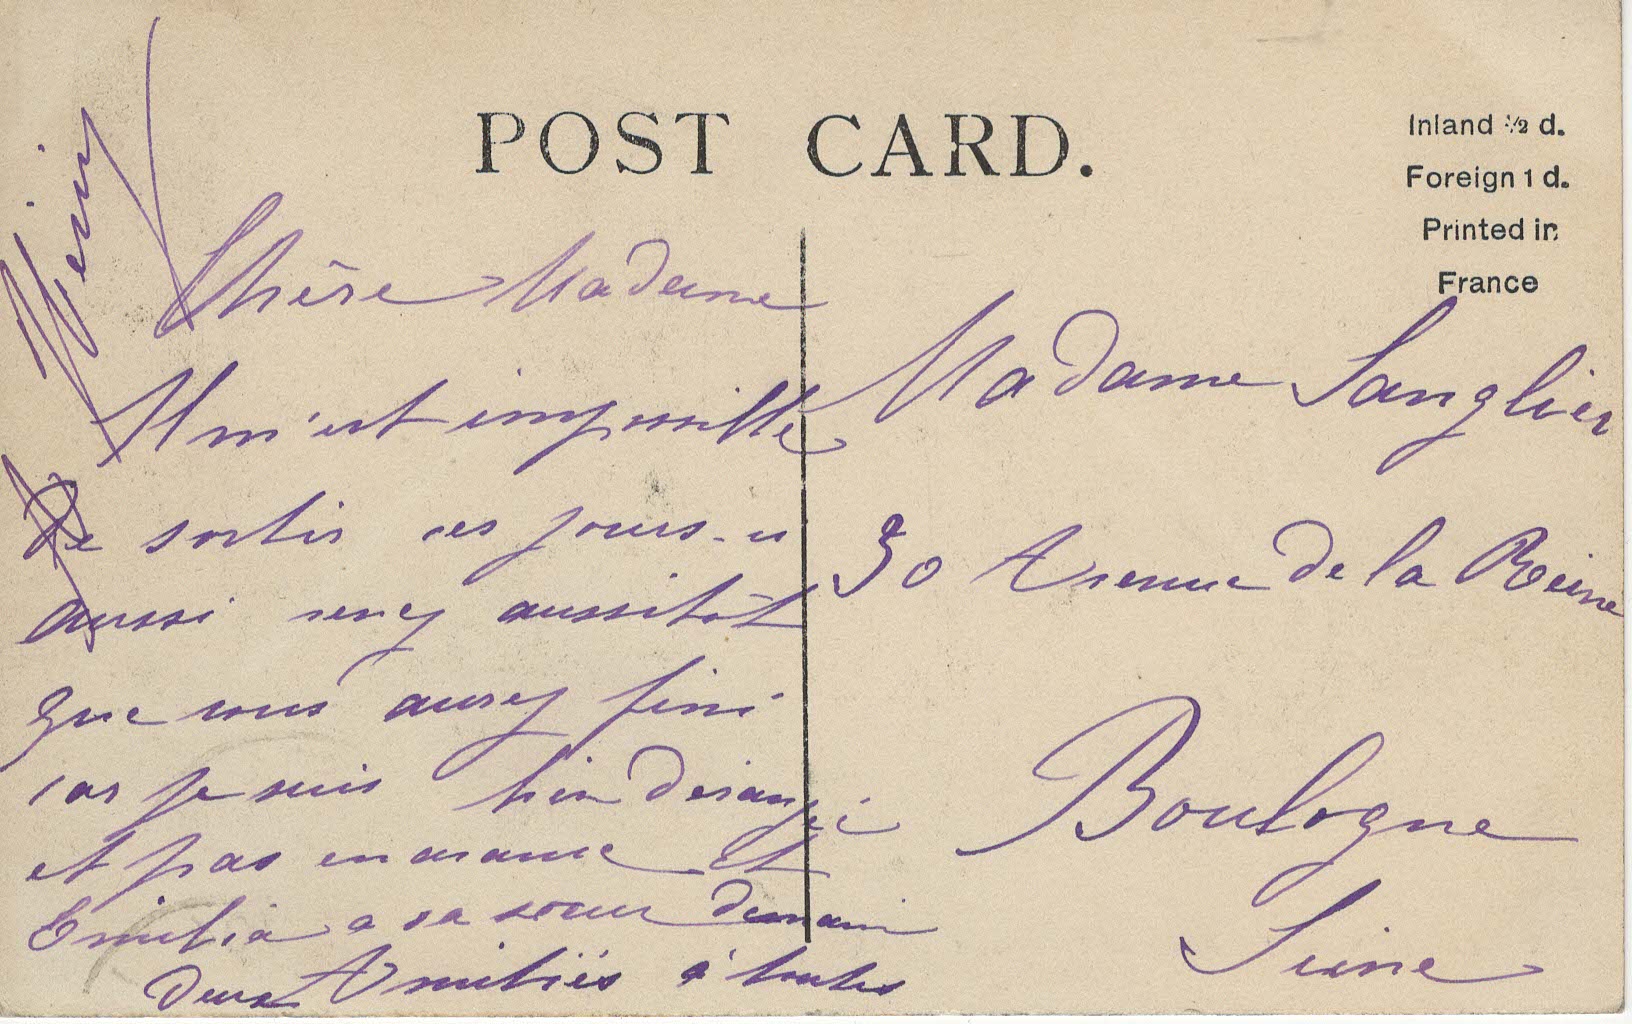 POST CARD.
Inland ½ d.
Foreign 1 d.
Printed in
France
Chère Madame
Il m'est impossible
de sortir ces jours-ci
aussi venez aussitôt
que vous aurez fini
car je suis bien derangée
et pas en avance et
Emilia a sa soeur demain
Amitiés à toutes
deux
Madame Sanglier
30 Avenue de la Reine
Boulogne
Seine